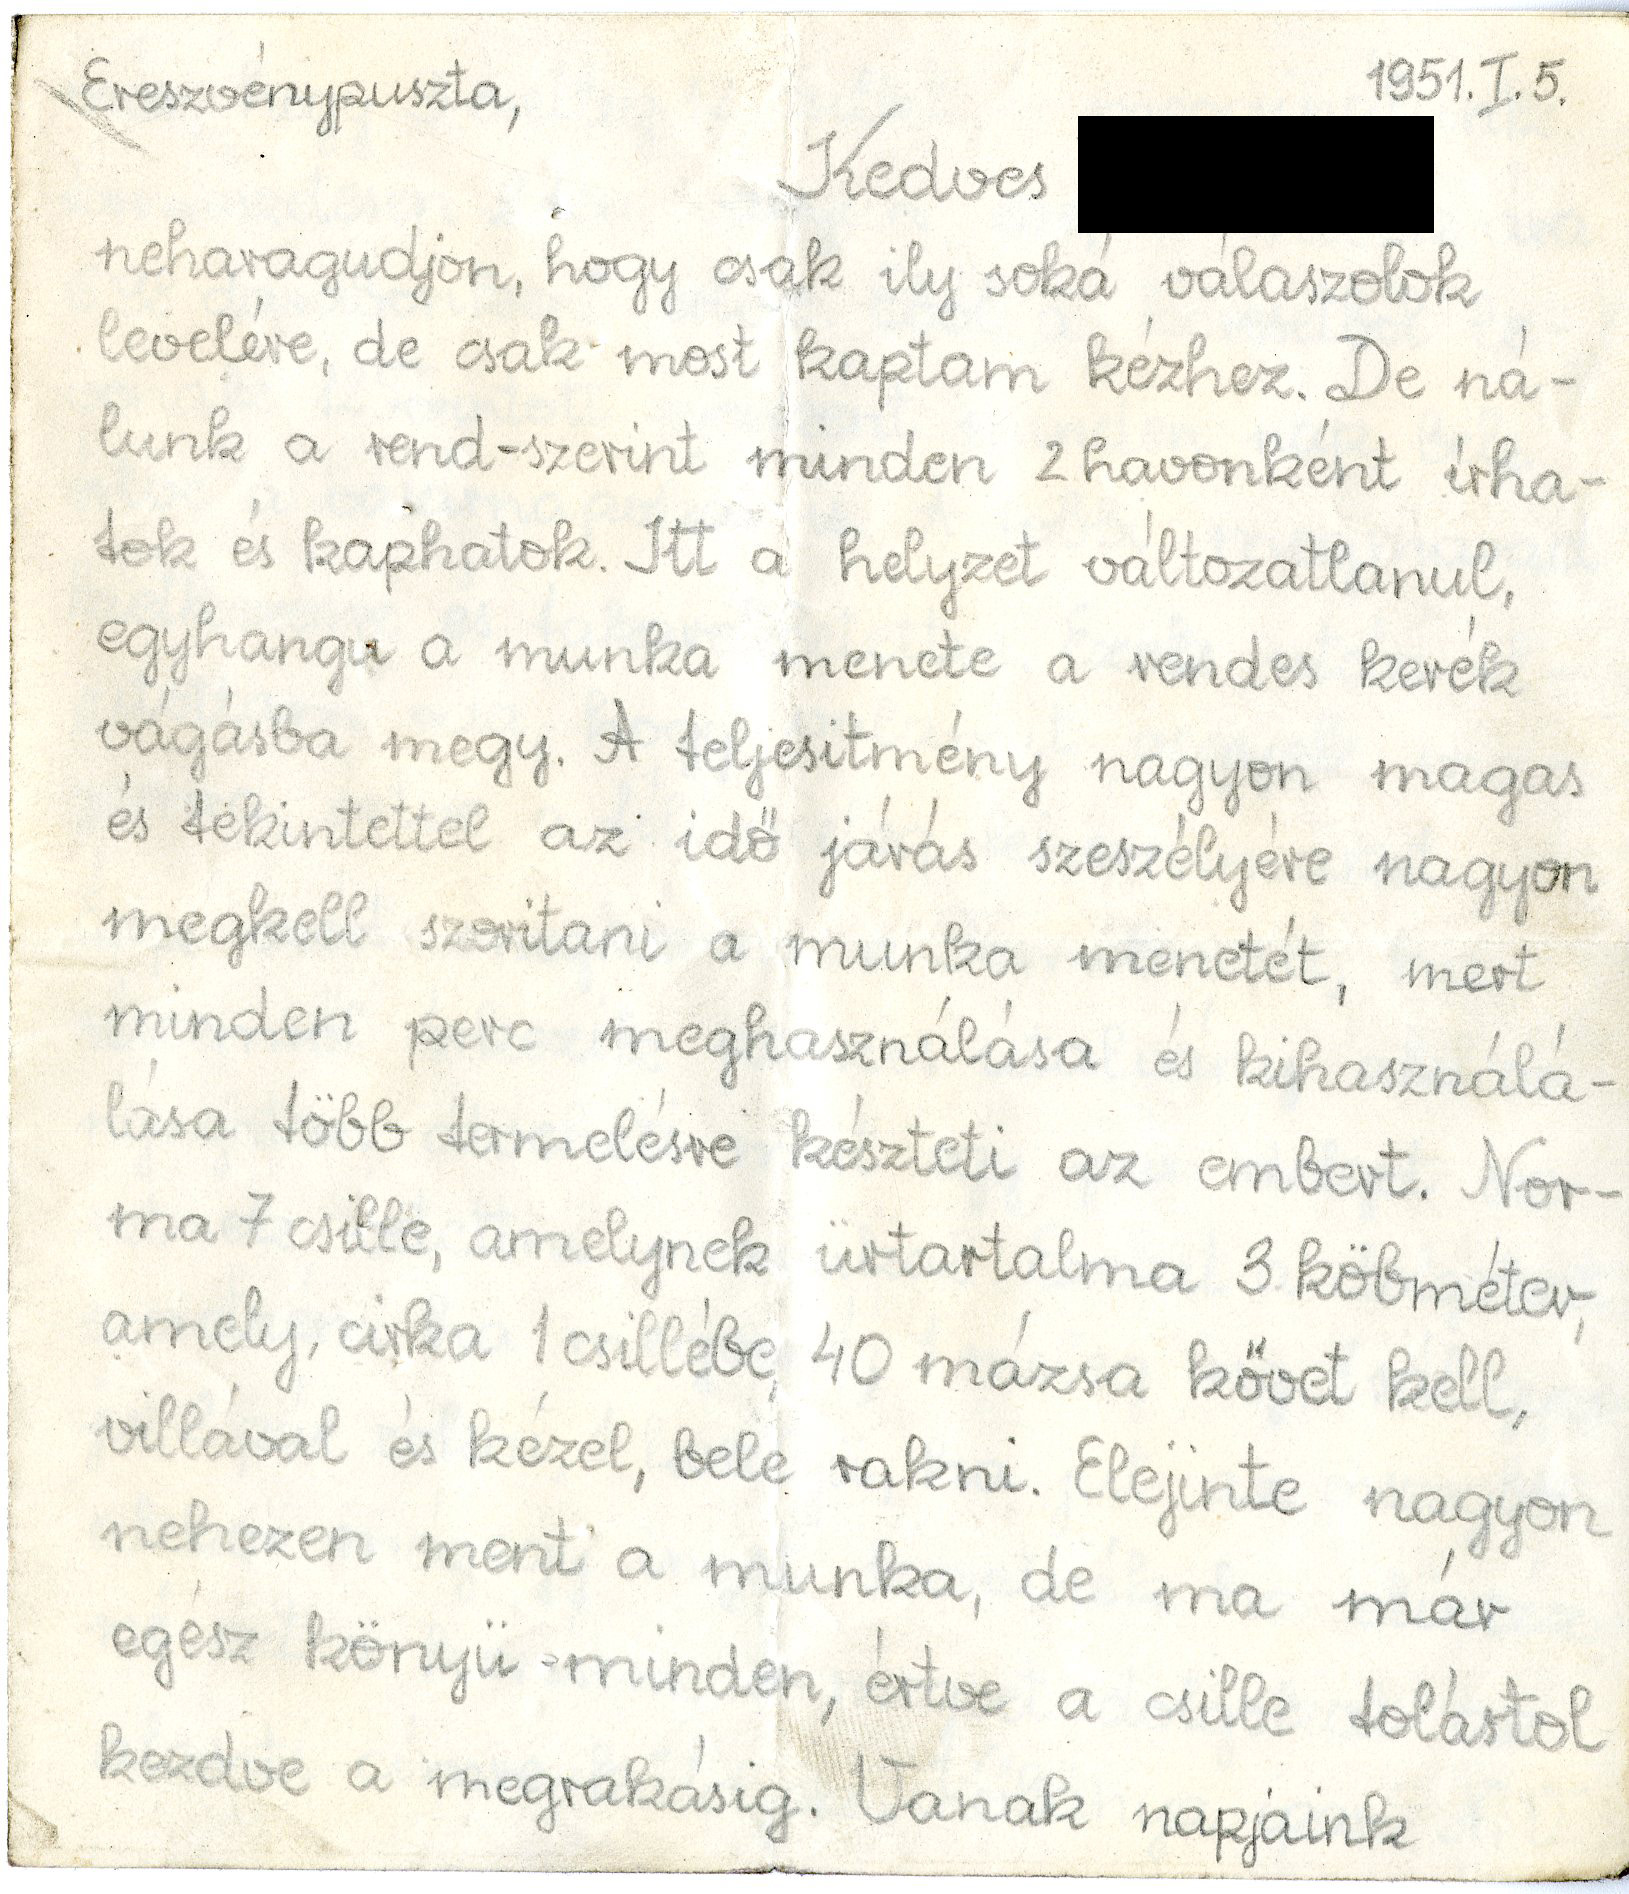 Ereszvénypuszta, 1951. I. 5.
Kedves
neharagudjon, hogy csak ily soká válaszolok
levelére, de csak most kaptam kézhez. De ná-
lunk a rend-szerint minden 2 havonként irha-
tok és kaphatok. Itt a helyzet változatlanul,
egyhangu a munka menete a rendes kerék
vágásba megy. A teljesitmény nagyon magas
és tekintettel az idő járás szeszélyére nagyon
megkell szoritani a munka menetét, mert
minden perc meghasználása és kihasználá-
lása több termelésre készteti az embert. Nor-
ma 7 csille, amelynek ürtartalma 3 köbméter,
amely, cirka 1 csillébe, 40 mázsa követ kell,
villával és kézel, bele rakni. Elejinte nagyon
nehezen ment a munka, de ma már
egész könyü minden, értve a csille tolástol
kezdve a megrakásig. Vanak napjaink